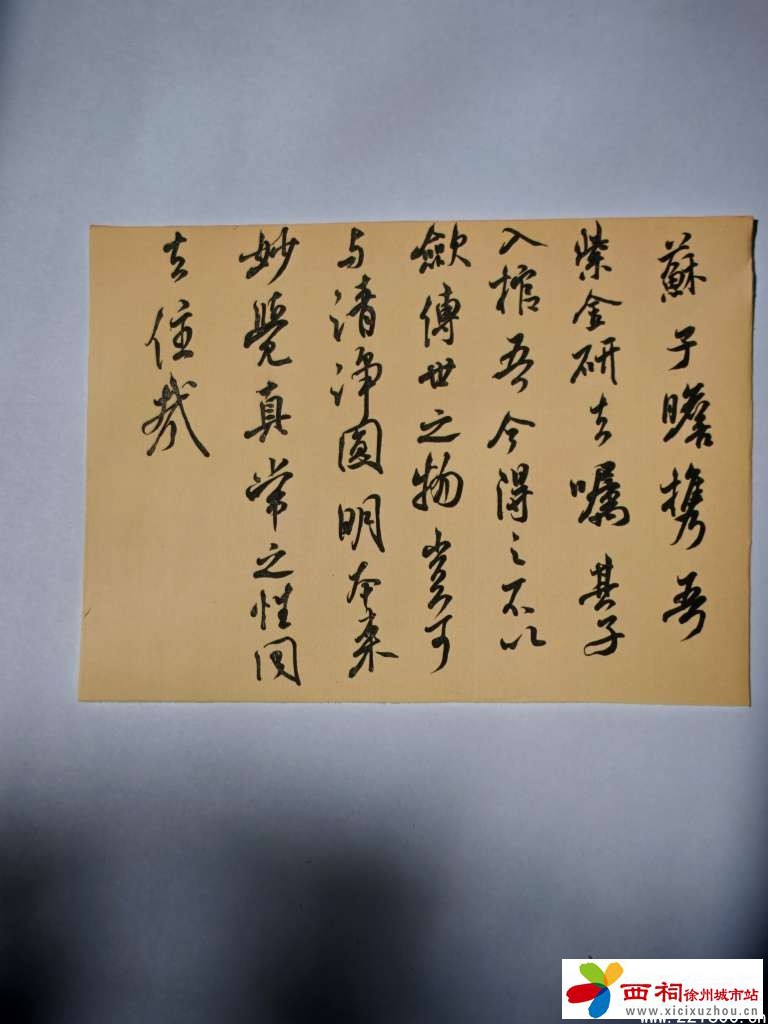 蘇子瞻携吾
紫金研去嘱其子
入棺吾今得之不以
歛傳世之物豈可
与清净圆明本来
妙覺真常之性同
去住哉
西祠徐州城市站
www.xicixuzhou.cn